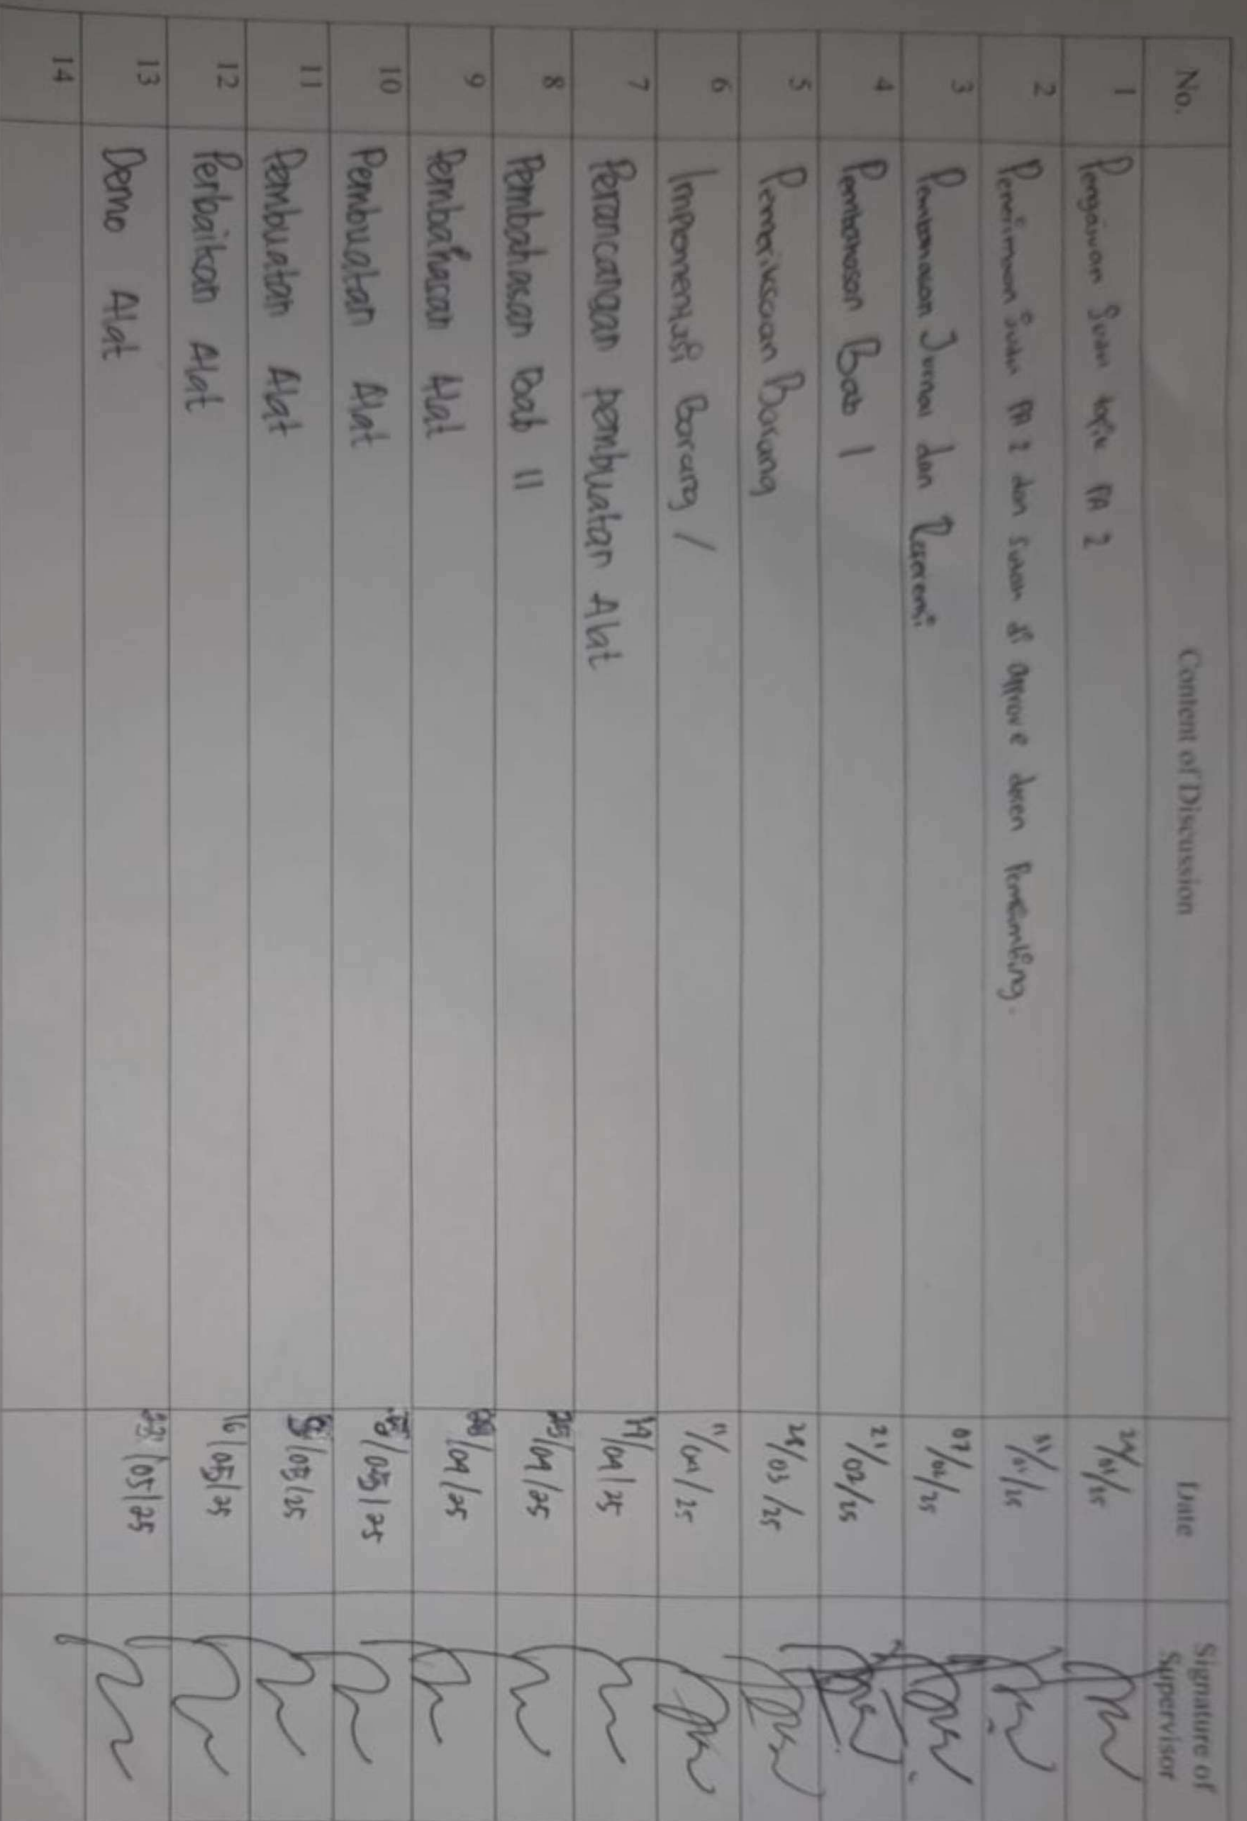 No. Content of Discussion Date Signature of Supervisor
1 Pengajuan Judul topik PA 2 24/01/25
2 Penerimaan Judul PA 2 dan sudah di approve dosen Pembimbing. 31/01/25
3 Pembahasan Jurnal dan Referensi 07/02/25
4 Pembahasan Bab 1 21/02/25
5 Pemeriksaan Borang 28/03/25
6 Impomentasi Borang / 11/04/25
7 Perancangan pembuatan Alat /04/25
8 Pembahasan Bab 11 /04/25
9 Pembahasan Alat /04/25
10 Pembuatan Alat /05/25
11 Pembuatan Alat /05/25
12 Perbaikan Alat 16/05/25
13 Demo Alat /05/25
14